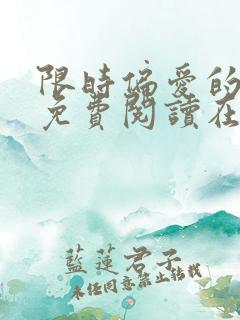 限時偏愛的
免費閱讀在
藍蓮君子
未経同意禁止転載